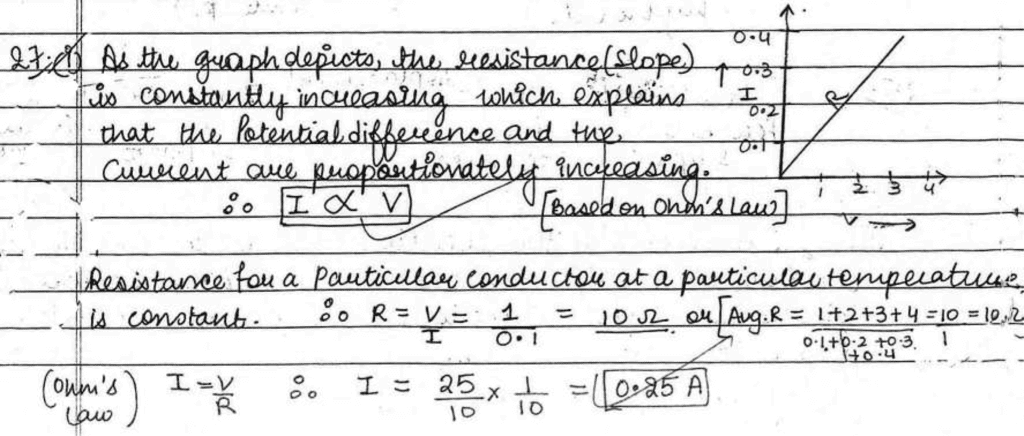 27.(i) As the graph depicts, the resistance (slope)
is constantly increasing which explains
that the Potential difference and the
Current are proportionately increasing.
∴ I ∝ V [Based on Ohm's Law]
0.4
↑ 0.3
I
0.2
0.1
R
1 2 3 4
V →
Resistance for a Particular conductor at a particular temperature
is constant. ∴ R = V/I = 1/0.1 = 10 Ω or [Avg. R = 1+2+3+4/0.1+0.2+0.3+0.4 = 10/1 = 10 Ω
(Ohm's Law) I = V/R ∴ I = 25/10 × 1/10 = 0.25 A